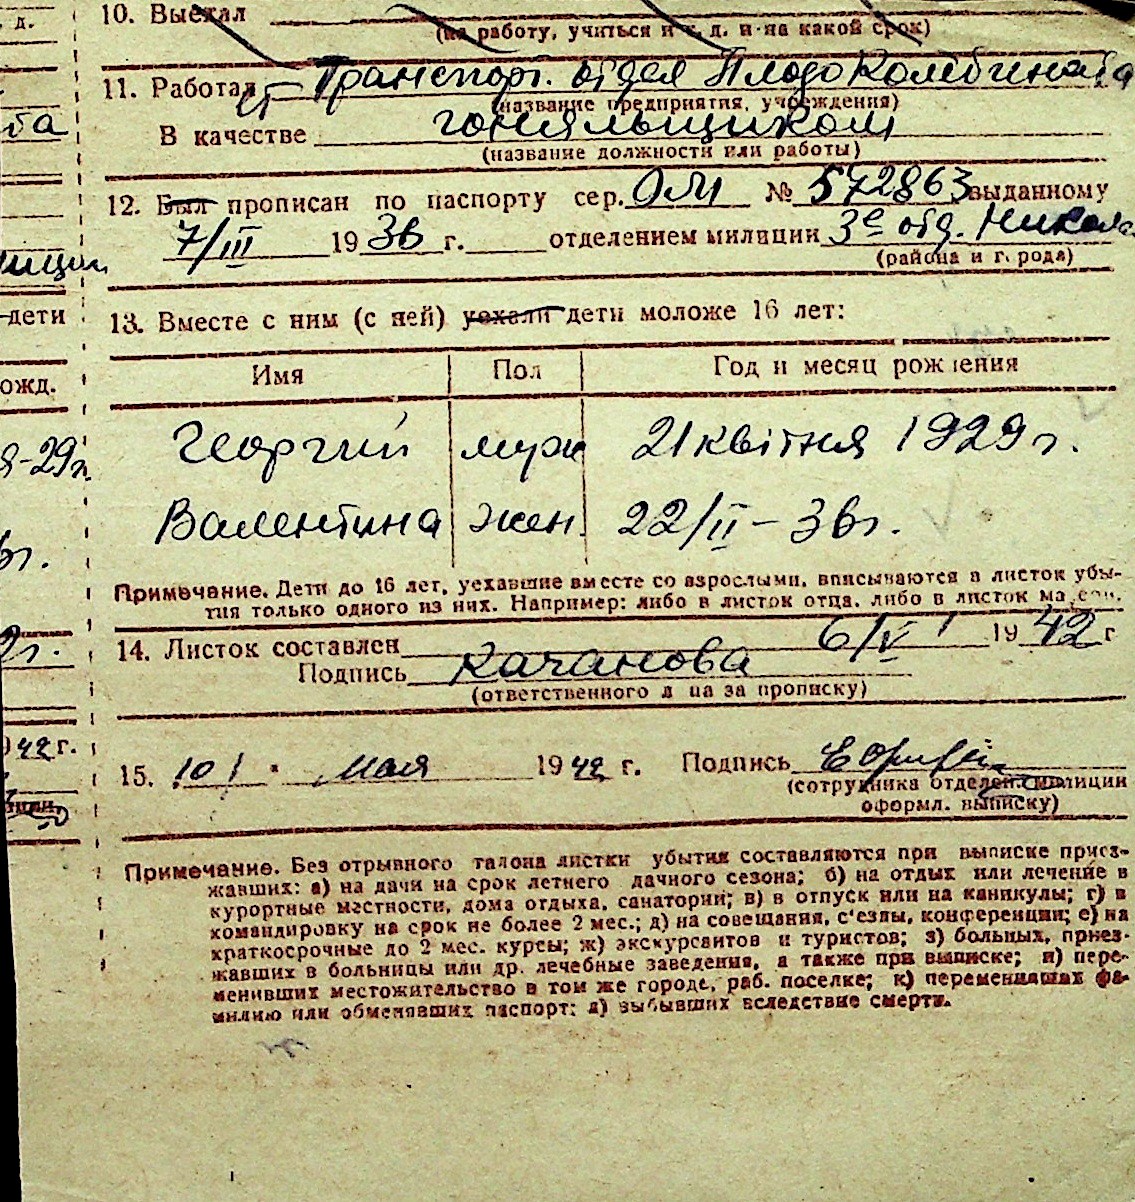 т. д.
10. Выехал
(на работу, учиться и т. д. и на какой срок)
11. Работает Транспорт. отдел Плодокомбината
(название предприятия, учреждения)
ба
В качестве гоняльщиком
(название должности или работы)
12. Был прописан по паспорту сер. ОМ № 572863 выданному
7/III 1936 г. отделением милиции 3е отд. Никола
(района и города)
дети
13. Вместе с ним (с ней) уехали дети моложе 16 лет:
ожд.
Имя Пол Год и месяц рождения
-29г.
Георгий муж 21 квітня 1929 г.
Валентина жен. 22/II - 36г.
6г.
Примечание. Дети до 16 лет, уехавшие вместе со взрослыми, вписываются в листок убы-
тия только одного из них. Например: либо в листок отца, либо в листок матери.
2г.
14. Листок составлен 6/V 1942 г
Подпись Качанова
(ответственного лица за прописку)
42 г.
15. 10 мая 1942 г. Подпись
(сотрудника отделен. милиции
оформл. выписку)
Примечание. Без отрывного талона листки убытия составляются при выписке приез-
жавших: а) на дачи на срок летнего дачного сезона; б) на отдых или лечение в
курортные местности, дома отдыха, санатории; в) в отпуск или на каникулы; г) в
командировку на срок не более 2 мес.; д) на совещания, с'езды, конференции; е) на
краткосрочные до 2 мес. курсы; ж) экскурсантов и туристов; з) больных, приез-
жавших в больницы или др. лечебные заведения, а также при выписке; и) пере-
менивших местожительство в том же городе, раб. поселке; к) переменивших фа-
милию или обменявших паспорт; л) выбывших вследствие смерти.